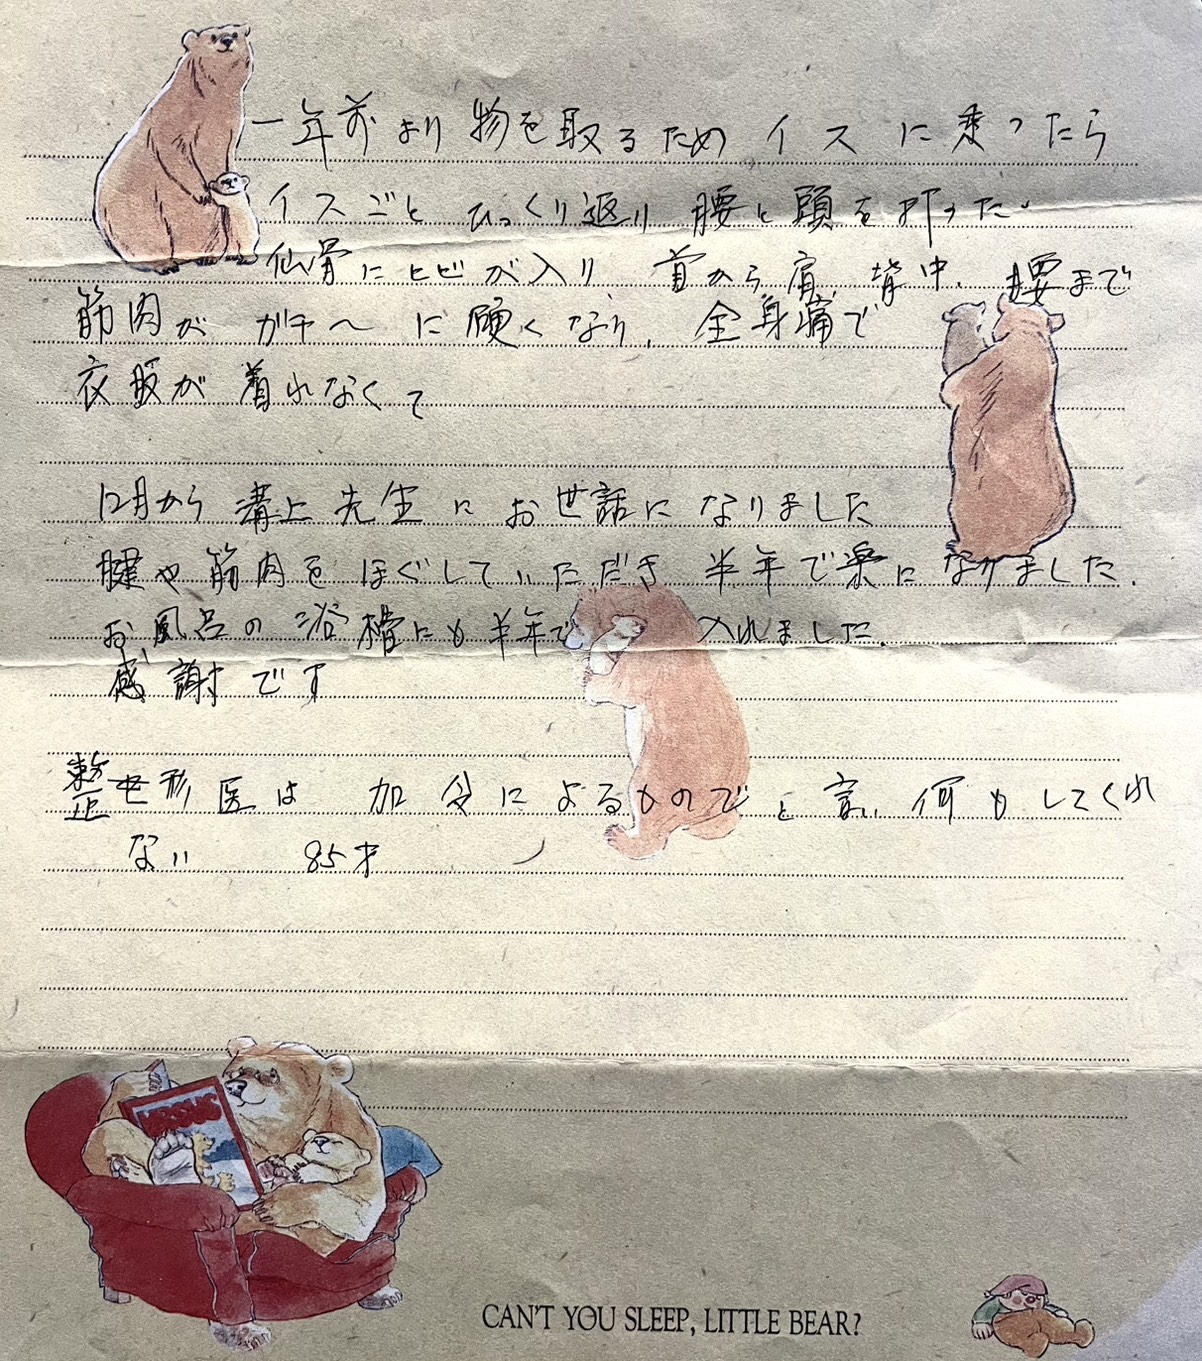 一年前より物を取るためイスに乗ったら
イスごとひっくり返り腰と頭を打った。
仙骨にヒビが入り、首から肩、背中、腰まで
筋肉がガチ〜に硬くなり、全身痛で
衣服が着れなくて
12月から溝上先生にお世話になりました
腱や筋肉をほぐしていただき半年で楽になりました.
お風呂の浴槽にも半年で入れました.
感謝です
整形医は加令によるものでと言い何もしてくれ
ない 85才
URSUS
CAN'T YOU SLEEP, LITTLE BEAR?